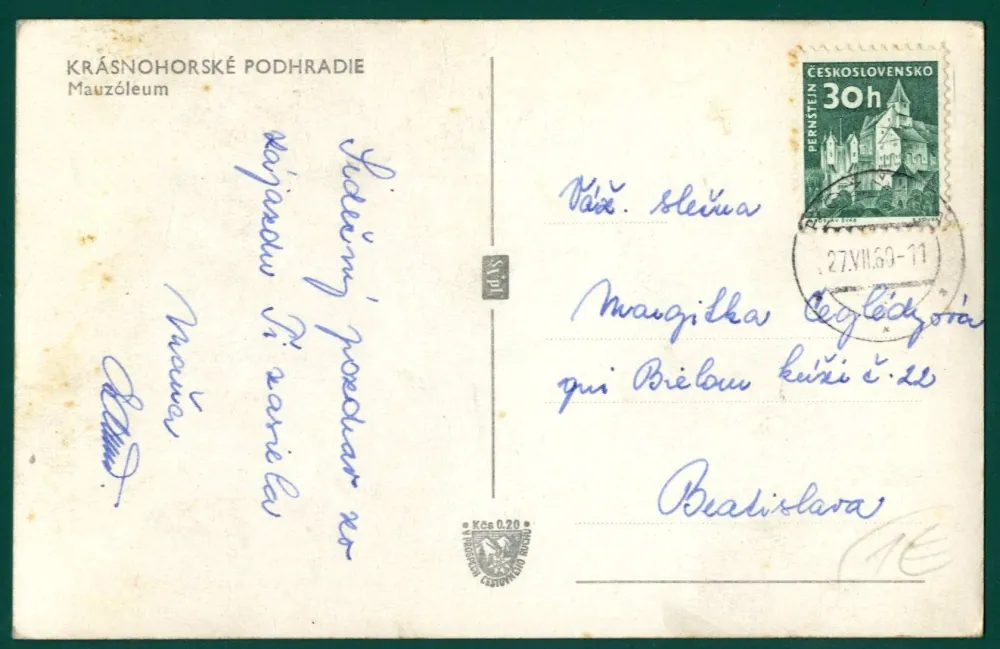 KRÁSNOHORSKÉ PODHRADIE
Mauzóleum
Srdečný pozdrav zo
zájazdu Ti zasiela
Maňa
Váž. slečna
Margitka Ceglédyová
pri Bielom kríži č. 22
Bratislava
ČESKOSLOVENSKO
30h
PERNŠTEJN
27.VII.60-11
Kčs 0.20
K PROSPĚCH CESTOVNÉHO RUCHU
1€